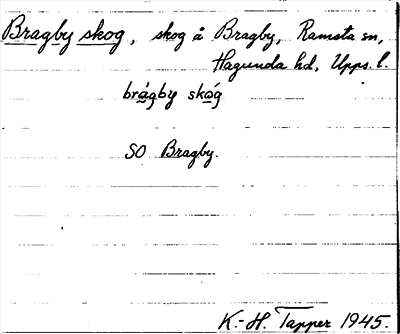 Bragby skog, skog å Bragby, Ramsta sn,
Hagunda hd, Upps. l.
brágby skóg
SO Bragby.
K.-H. Tapper 1945.